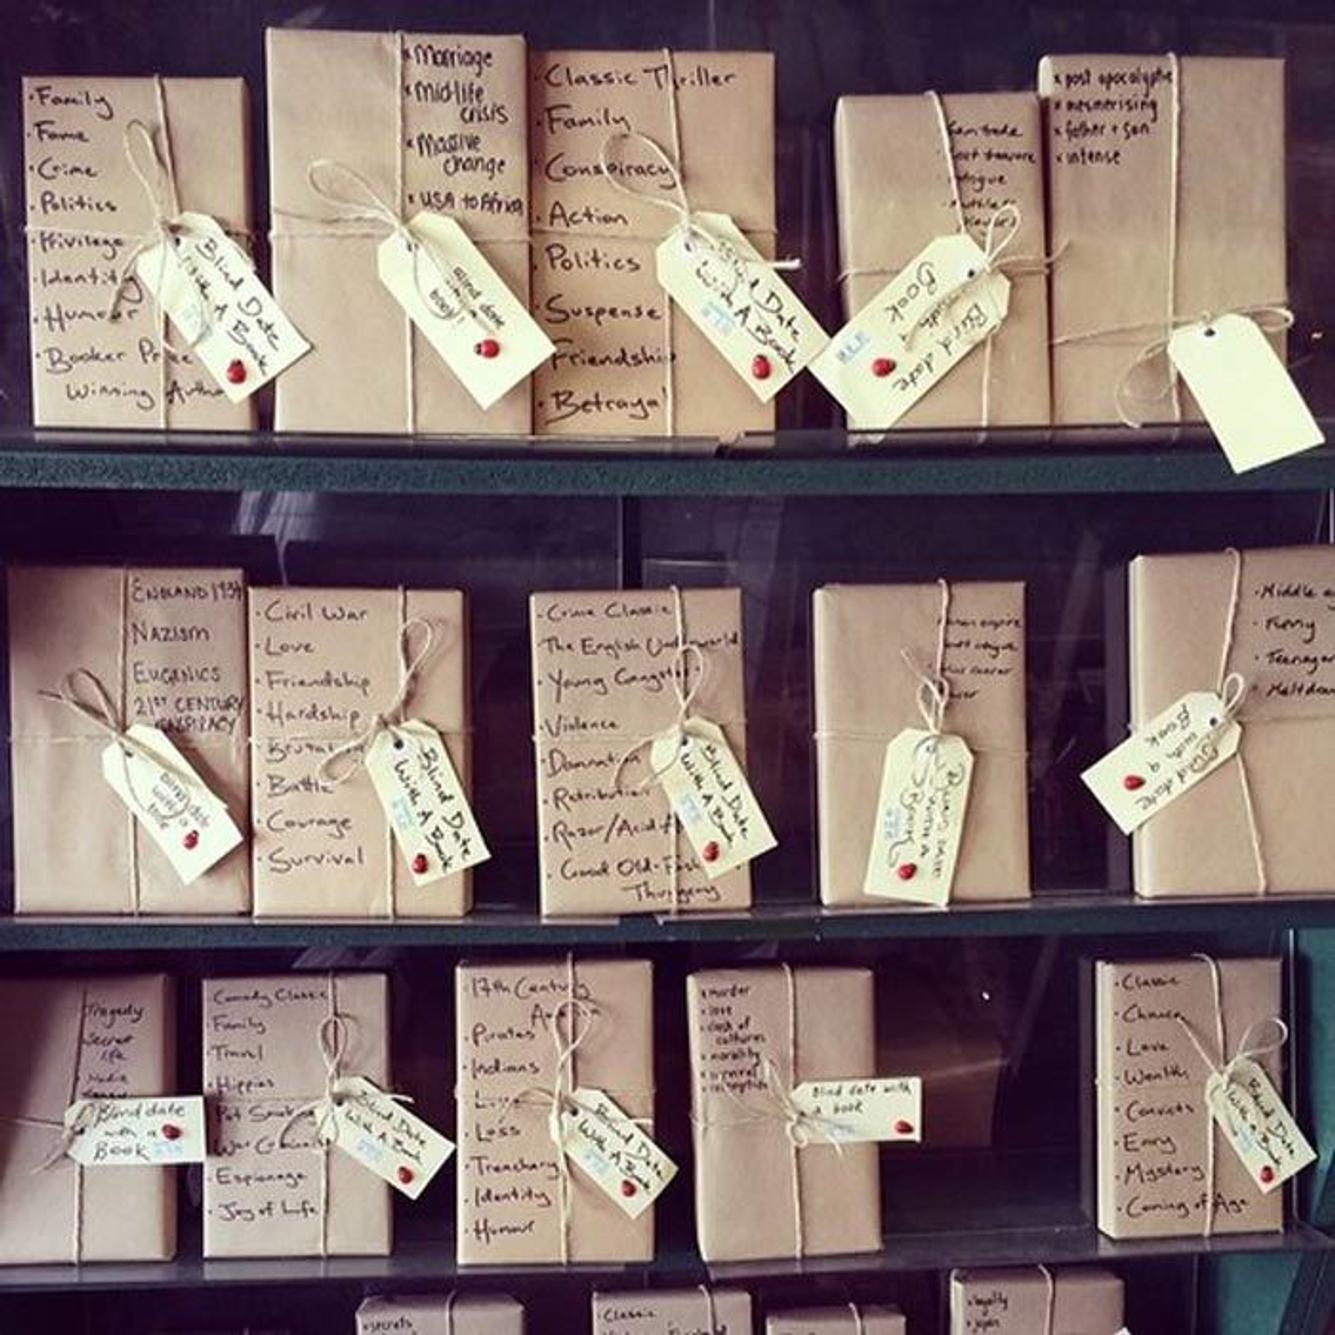 · Family
· Fame
· Crime
· Politics
· Privilege
· Identity
· Humour
· Booker Prize
Winning Author
Blind Date
With A Book
× Marriage
× Midlife
crisis
× Massive
change
× USA to Africa
Blind date
with a
book!
· Classic Thriller
· Family
· Conspiracy
· Action
· Politics
· Suspense
· Friendship
· Betrayal
Blind Date
With A Book
Blind date
with a
Book
× post apocalyptic
× mesmerising
× father + son
× intense
ENGLAND 1934
NAZISM
EUGENICS
21ST CENTURY
CONSPIRACY
Blind date
with a
· Civil War
· Love
· Friendship
· Hardship
· Brutality
· Battle
· Courage
· Survival
Blind Date
With A Book
· Crime Classic
· The English Underworld
· Young Gangster
· Violence
· Damnation
· Retribution
· Razor/Acid
· Good Old-Fash
Thuggery
Blind Date
With A Book
Blind date
with a
Book
· Middle
· Funny
· Teenager
· Meltdown
Blind date
with a
Book
Tragedy
Secret
life
Blind date
with a
BOOK
Comedy Classic
· Family
· Travel
· Hippies
· Pot Smoking
· War Criminals
· Espionage
· Joy of Life
Blind Date
With A Book
· 17th Century
· Pirates
· Indians
· Love
· Loss
· Treachery
· Identity
· Humour
Blind Date
With A Book
× murder
× love
× clash of
cultures
× morality
Blind date with
a book
· Classic
· Chance
· Love
· Wealth
· Convicts
· Envy
· Mystery
· Coming of Age
Blind Date
With A Book
× secrets
· Classic
× loyalty
× Japan